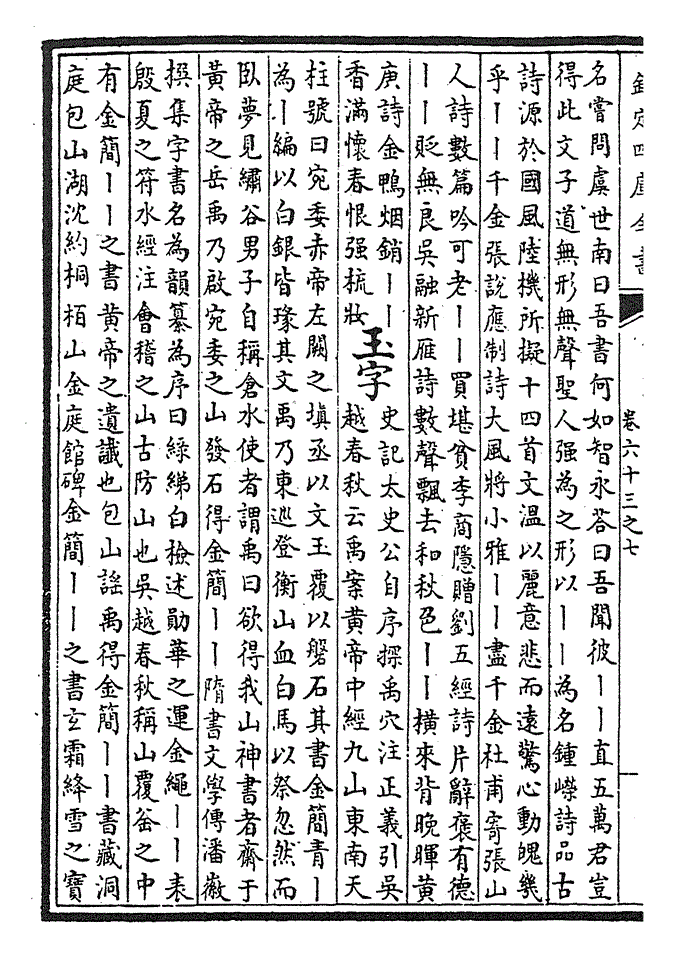 欽定四庫全書
卷六十三之七
名嘗問虞世南曰吾書何如智永答曰吾聞彼｜｜直五萬君豈
得此文子道無形無聲聖人强為之形以｜｜為名鍾嶸詩品古
詩源於國風陸機所擬十四首文溫以麗意悲而遠驚心動魄幾
乎｜｜千金張說應制詩大風將小雅｜｜盡千金杜甫寄張山
人詩數篇吟可老｜｜買堪貧李商隱贈劉五經詩片辭褒有德
｜｜貶無良吳融新雁詩數聲飄去和秋色｜｜橫來背晚暉黃
庚詩金鴨烟銷｜｜
香滿懷春恨强梳妝
玉字
史記太史公自序探禹穴注正義引吳
越春秋云禹案黃帝中經九山東南天
柱號曰宛委赤帝左闕之填丞以文玉覆以磐石其書金簡青｜
為｜編以白銀皆瑑其文禹乃東巡登衡山血白馬以祭忽然而
臥夢見繡谷男子自稱倉水使者謂禹曰欲得我山神書者齋于
黃帝之岳禹乃啟宛委之山發石得金簡｜｜隋書文學傳潘徽
撰集字書名為韻纂為序曰緑綈白檢述勛華之運金繩｜｜表
殷夏之符水經注會稽之山古防山也吳越春秋稱山覆釡之中
有金簡｜｜之書黃帝之遺讖也包山謡禹得金簡｜｜書藏洞
庭包山湖沈約桐栢山金庭館碑金簡｜｜之書玄霜絳雪之寶